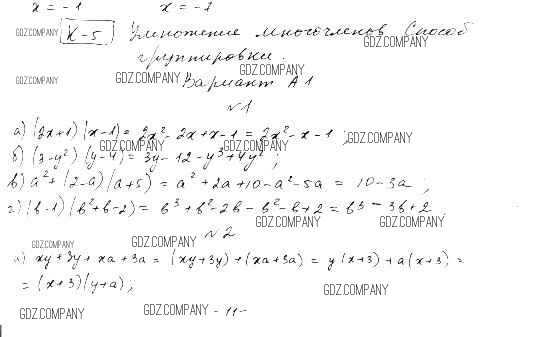 x = -1 x = -1
GDZ.COMPANY К-5 Умножение многочленов Способ
GDZ.COMPANY
группировки.
GDZ.COMPANY
GDZ.COMPANY GDZ.COMPANY Вариант А1
№1
а) (2x+1)(x-1) = 2x² - 2x + x - 1 = 2x² - x - 1 ; GDZ.COMPANY
GDZ.COMPANY GDZ.COMPANY
б) (3-y²)(y-4) = 3y - 12 - y³ + 4y² ;
в) a² + (2-a)(a+5) = a² + 2a + 10 - a² - 5a = 10 - 3a ;
г) (b-1)(b²+b-2) = b³ + b² - 2b - b² - b + 2 = b³ - 3b + 2
GDZ.COMPANY GDZ.COMPANY
№2
GDZ.COMPANY GDZ.COMPANY
а) xy + 3y + xa + 3a = (xy+3y) + (xa+3a) = y(x+3) + a(x+3) =
= (x+3)(y+a) ; GDZ.COMPANY
GDZ.COMPANY GDZ.COMPANY - 11 -